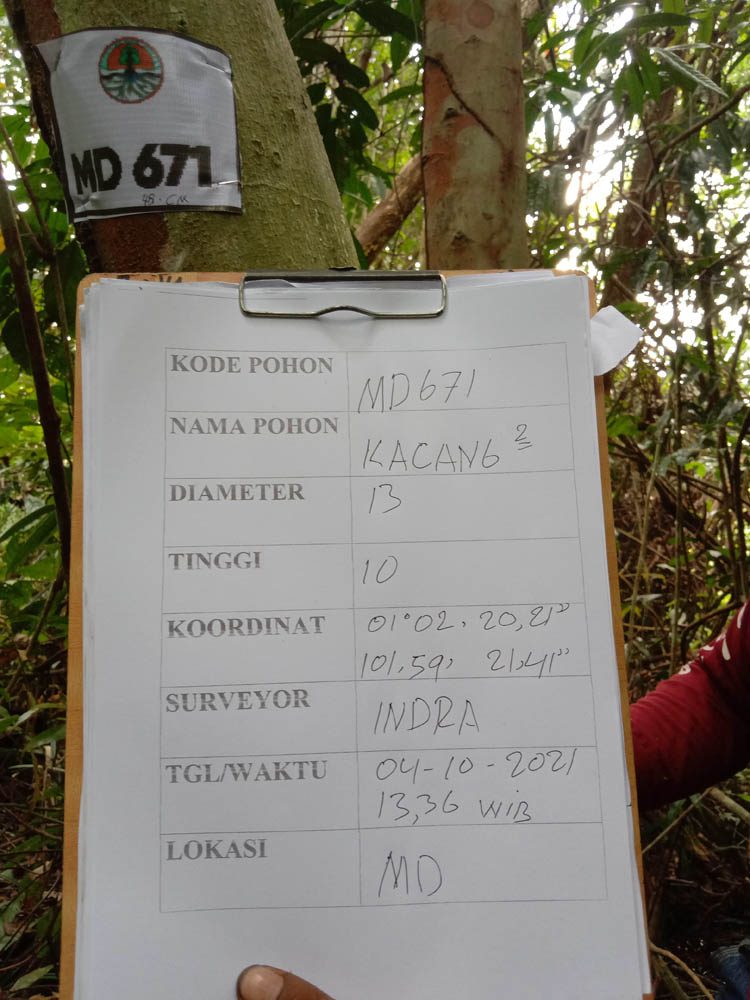 MD 671
48. CM
KODE POHON MD671
NAMA POHON KACANG 2
DIAMETER 13
TINGGI 10
KOORDINAT 01°02. 20,21"
101,59, 21,41"
SURVEYOR INDRA
TGL/WAKTU 04-10-2021
13,36 WIB
LOKASI MD